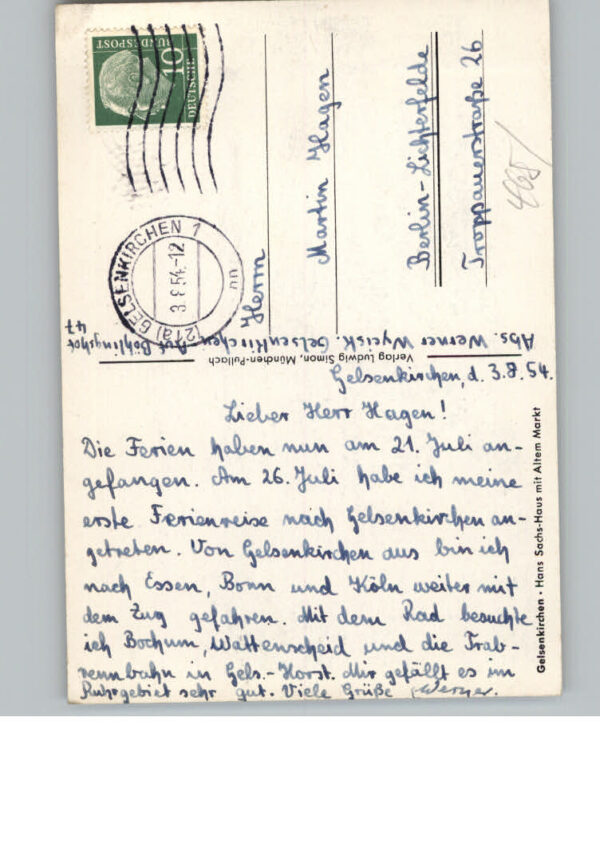 DEUTSCHE
BUNDESPOST
10
(21a) GELSENKIRCHEN 1
3.8.54.-12
uu
Herrn
Martin Hagen
Berlin-Lichterfelde
Troppauerstraße 26
Abs. Werner Wycisk. Gelsenkirchen Auf Böhlingshof
47
Verlag Ludwig Simon, München-Pullach
Gelsenkirchen, d. 3.8.54.
Lieber Herr Hagen!
Die Ferien haben nun am 21. Juli an-
gefangen. Am 26. Juli habe ich meine
erste Ferienreise nach Gelsenkirchen an-
getreten. Von Gelsenkirchen aus bin ich
nach Essen, Bonn und Köln weiter mit
dem Zug gefahren. Mit dem Rad besuchte
ich Bochum, Wattenscheid und die Trab-
rennbahn in Gels.-Horst. Mir gefällt es im
Ruhrgebiet sehr gut. Viele Grüße Werner.
Gelsenkirchen · Hans Sachs-Haus mit Altem Markt